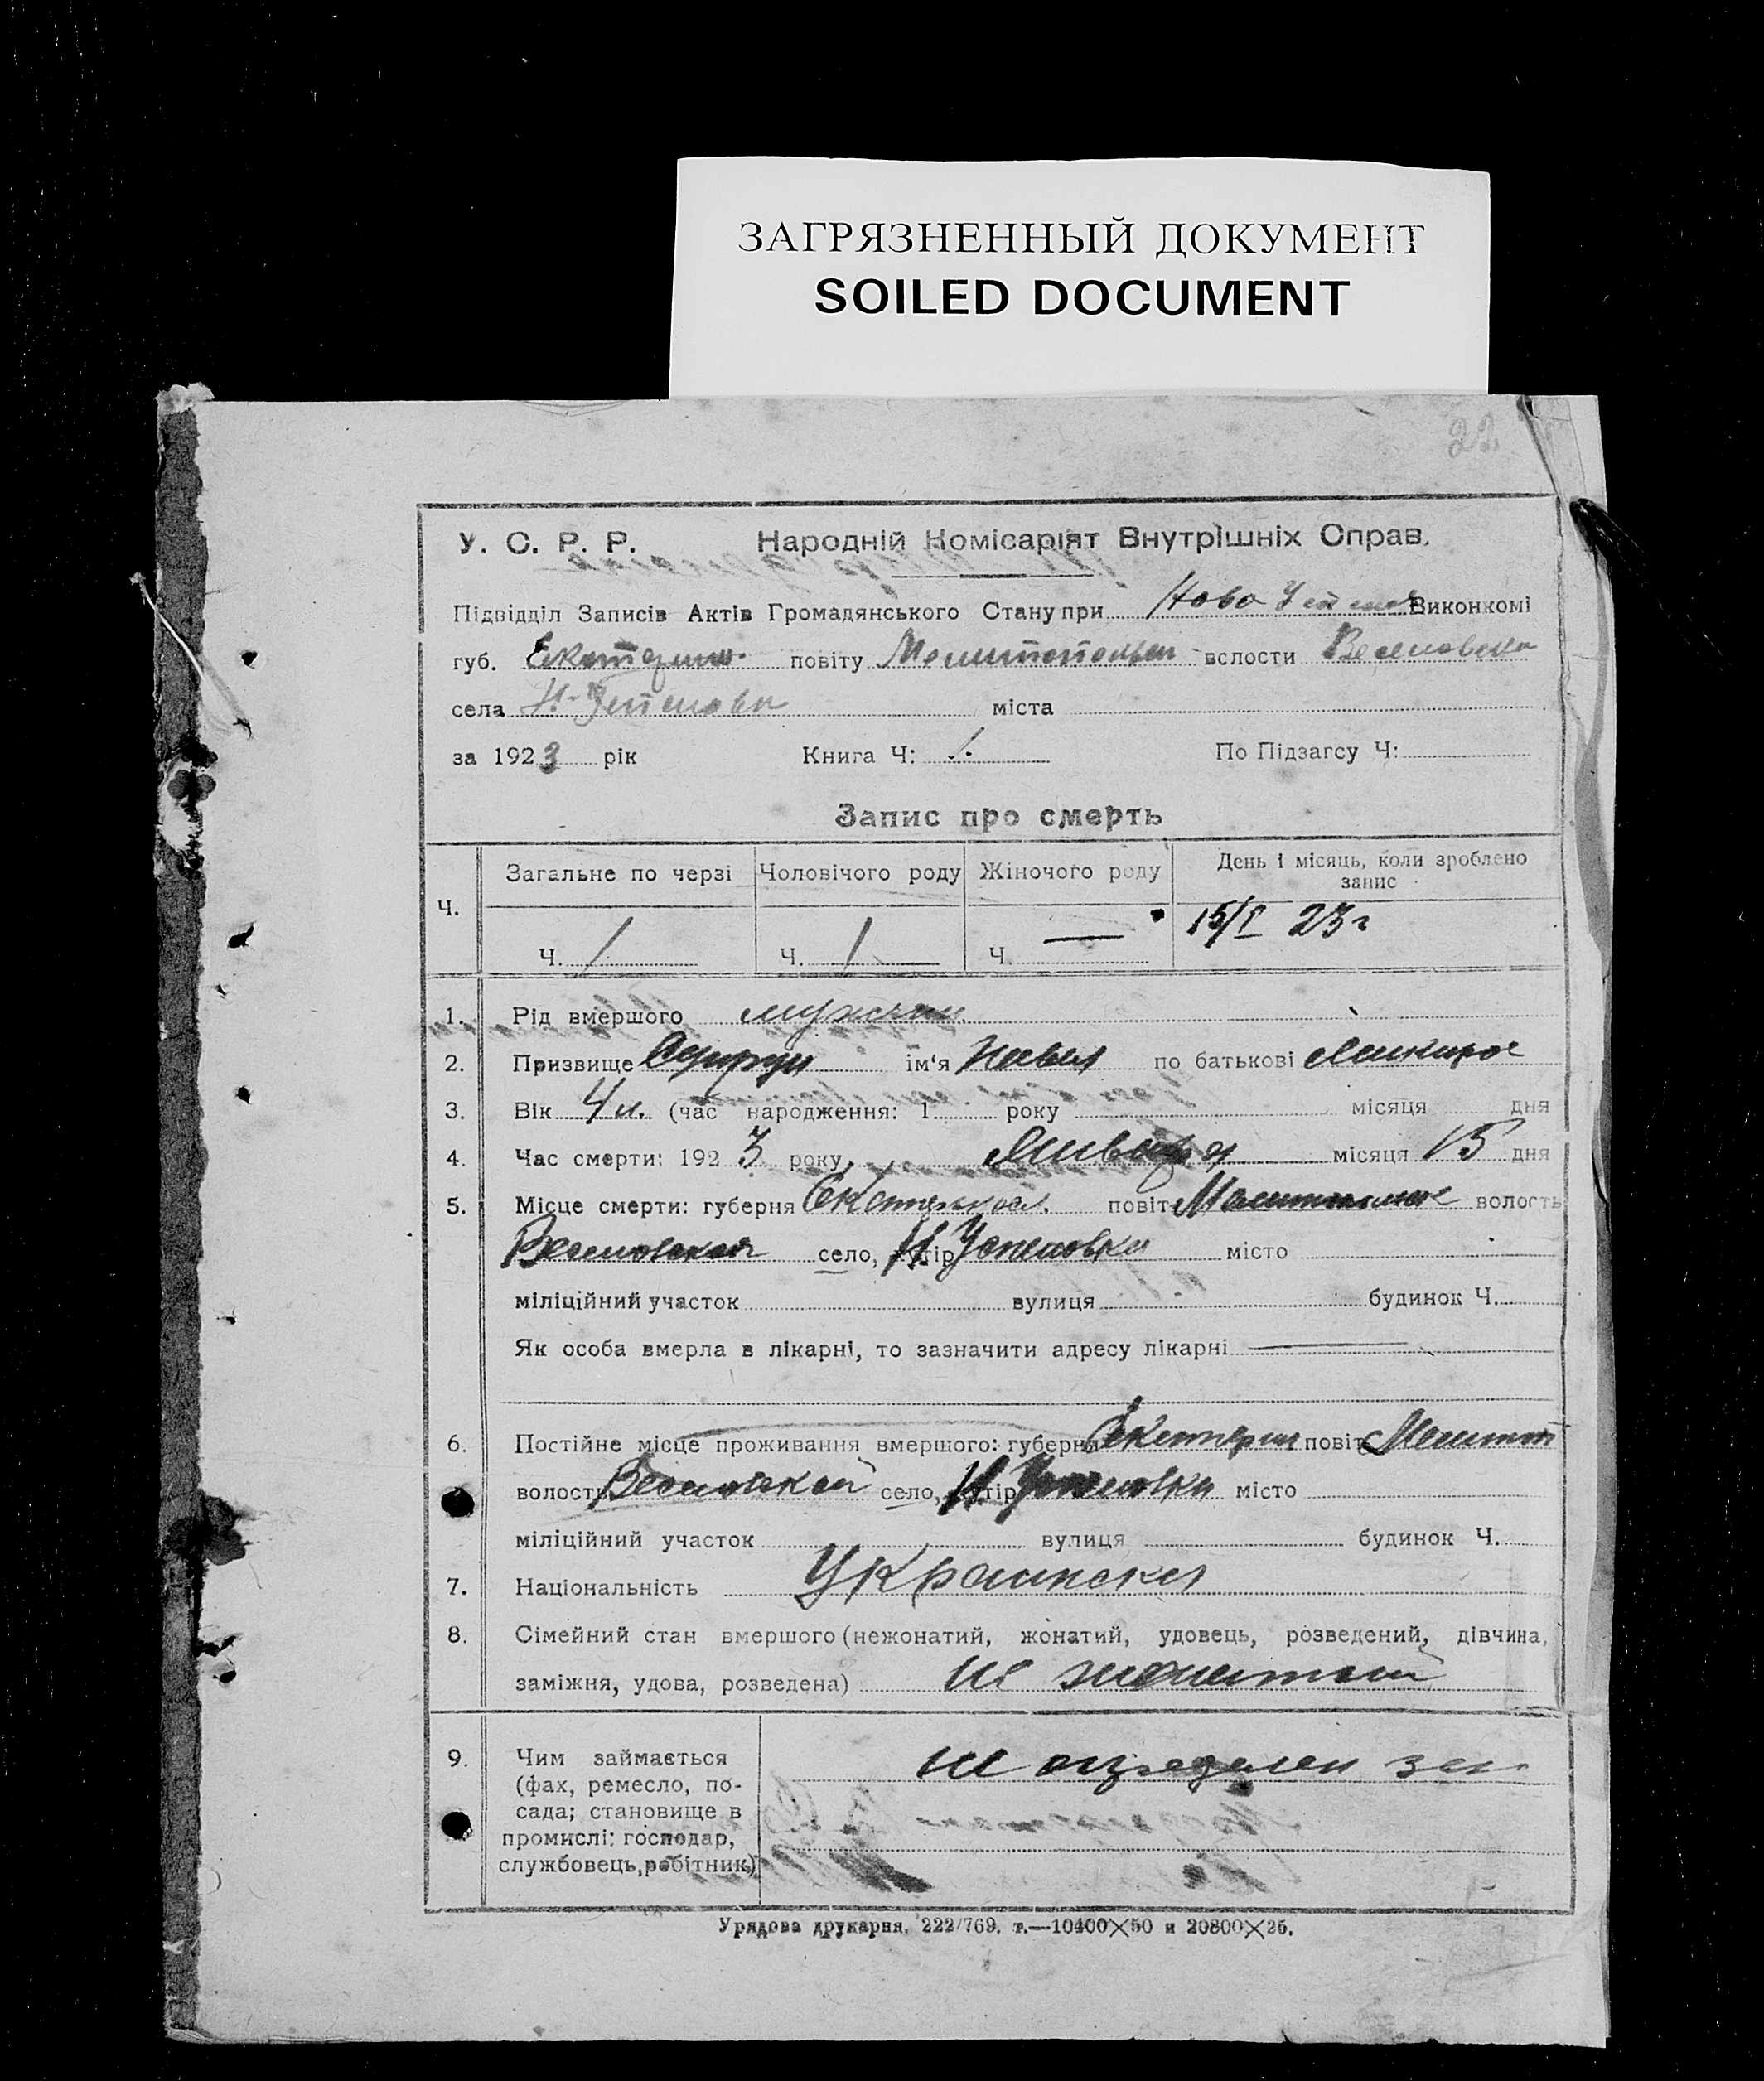 ЗАГРЯЗНЕННЫЙ ДОКУМЕНТ
SOILED DOCUMENT
22
У. С. Р. Р. Народній Комісаріят Внутрішніх Справ.
Підвідділ Записів Актів Громадянського Стану при Ново Виконкомі
губ. Екатерин. повіту волости
села міста
за 1923 рік Книга Ч: 1. По Підзагсу Ч:
Запис про смерть
Ч. Загальне по черзі Чоловічого роду Жіночого роду День і місяць, коли зроблено
запис
Ч. 1 Ч. 1 Ч. — 15/I 23 г
1. Рід вмершого мужчин
2. Призвище ім'я Павел по батькові
3. Вік (час народження: 1 року місяця дня
4. Час смерти: 1923 року Января місяця 15 дня
5. Місце смерти: губерня повіт волость
Веселовская село, хутір Н. Успеновка місто
міліційний участок вулиця будинок Ч.
Як особа вмерла в лікарні, то зазначити адресу лікарні —
6. Постійне місце проживання вмершого: губерня Екатерин повіт Мелитоп
волость Веселовской село, хутір Н. Успеновка місто
міліційний участок вулиця будинок Ч.
7. Національність
8. Сімейний стан вмершого (нежонатий, жонатий, удовець, розведений, дівчина,
заміжня, удова, розведена) не женатый
9. Чим займається не определен
(фах, ремесло, по-
сада; становище в
промислі: господар,
службовець, робітник)
Урядова друкарня. 222/769. т.—10400×50 и 20800×25.